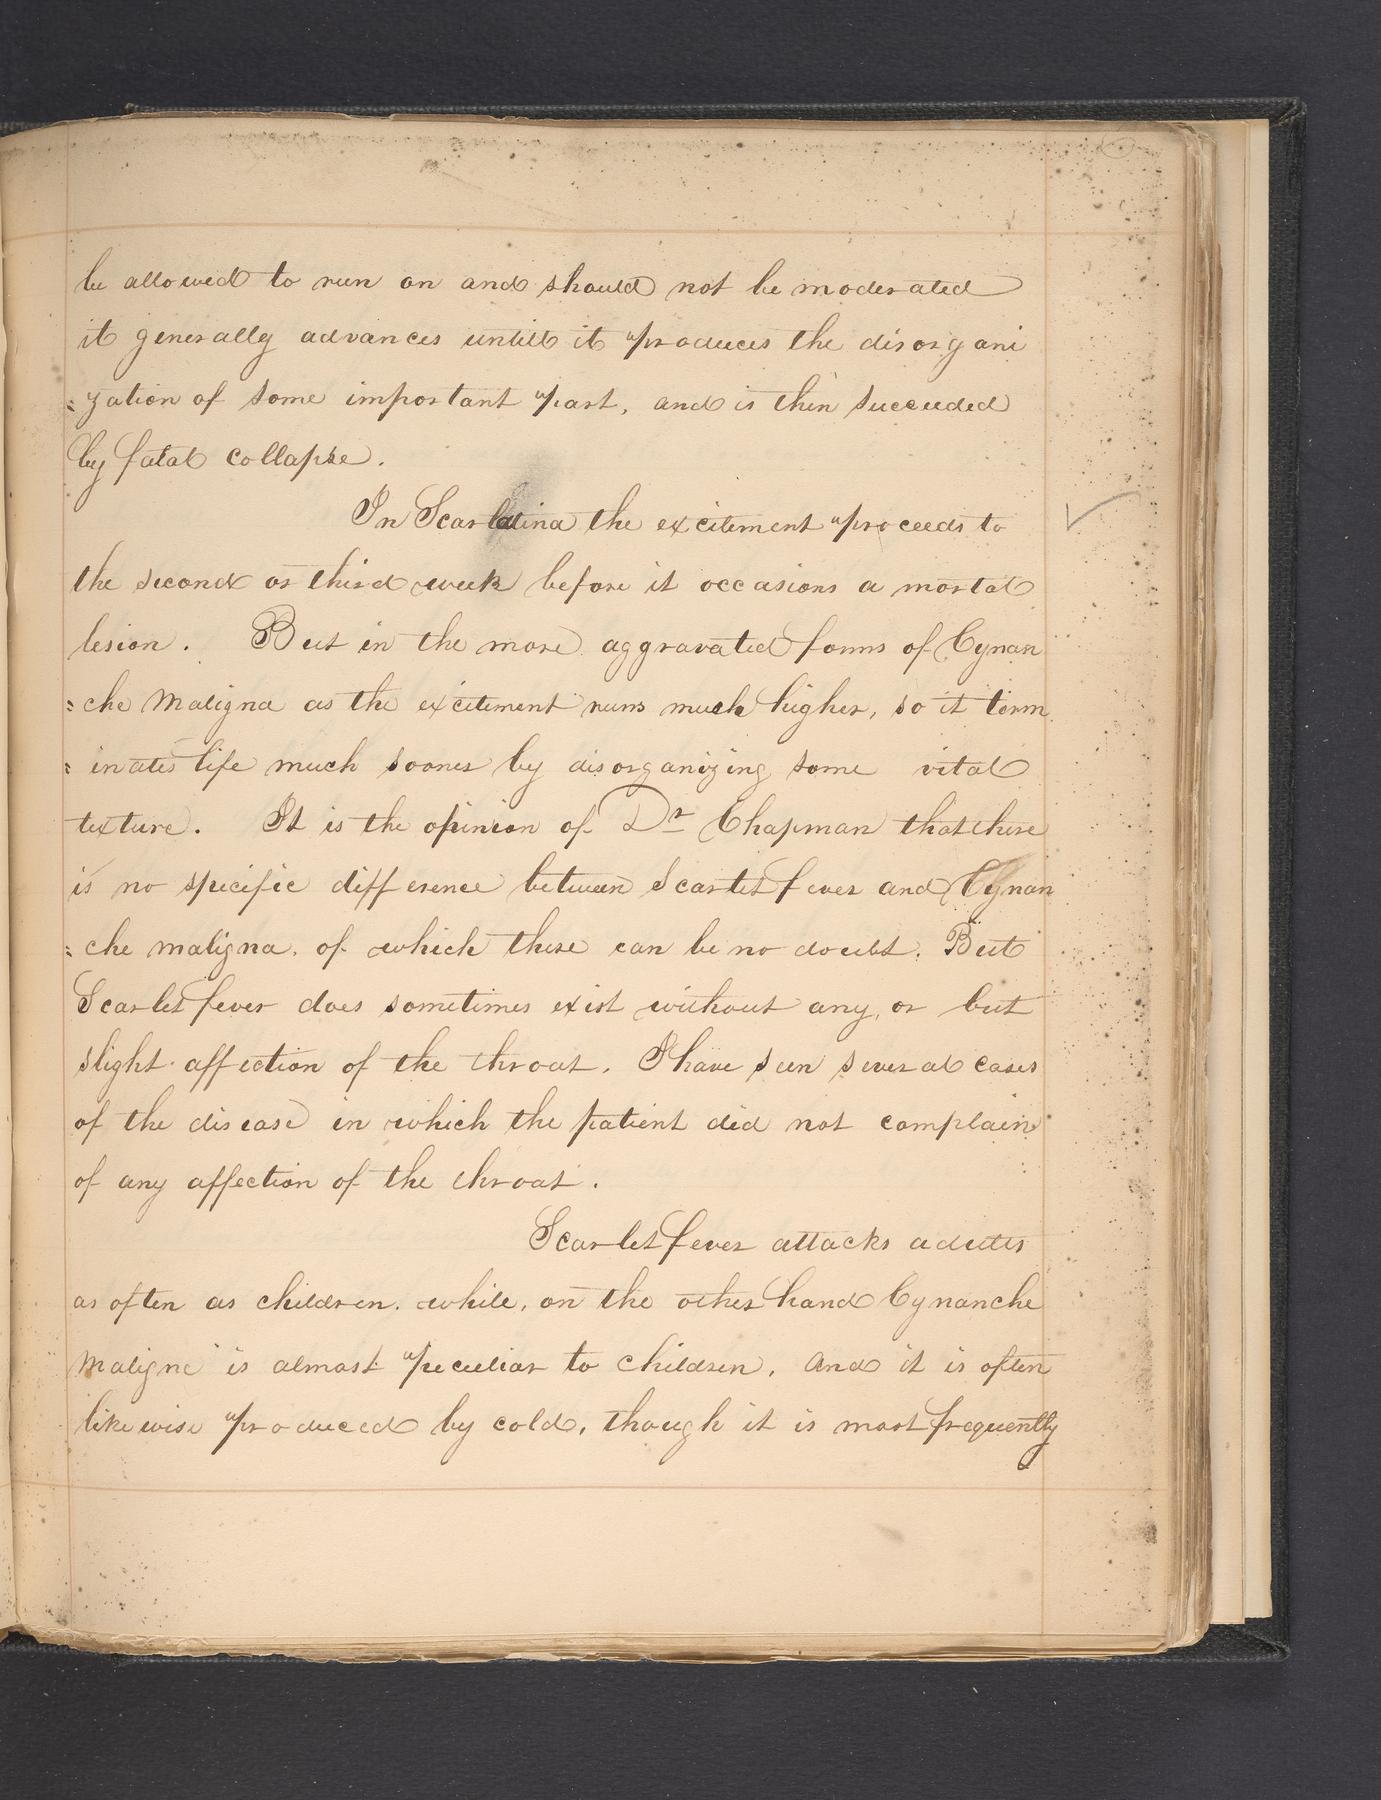 be allowed to run on and should not be moderated
it generally advances untill it produces the disorgani
=zation of some important part, and is then succeeded
by fatal collapse.
In Scarlatina the excitement proceeds to
the second or third week before it occasions a mortal
lesion. But in the more aggravated forms of Cynan
=che Maligna as the excitement runs much higher, so it term
=inates life much sooner by disorganizing some vital
texture. It is the opinion of Dr Chapman that there
is no specific difference between Scarlet fever and Cynan
=che maligna. of which there can be no doubt. But
Scarlet fever does sometimes exist without any, or but
slight affection of the throat. I have seen several cases
of the disease in which the patient did not complain
of any affection of the throat.
Scarlet fever attacks adults
as often as children. while, on the other hand Cynanche
Maligne is almost peculiar to children. And it is often
likewise produced by cold, though it is most frequently